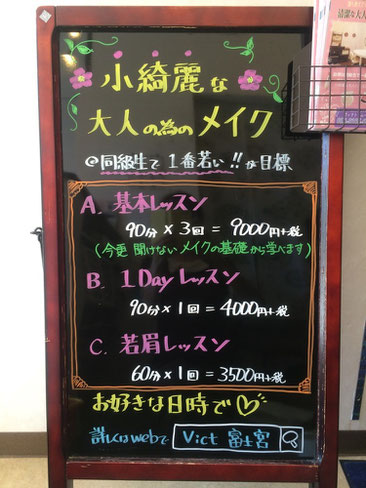 小綺麗な
大人の為のメイク
@同級生で1番若い!!が目標
A. 基本レッスン
90分×3回=9000円+税
(今更聞けないメイクの基礎から学べます)
B. 1Day レッスン
90分×1回=4000円+税
C. 若眉レッスン
60分×1回=3500円+税
お好きな日時で♡
詳しくはwebで Vict 富士宮